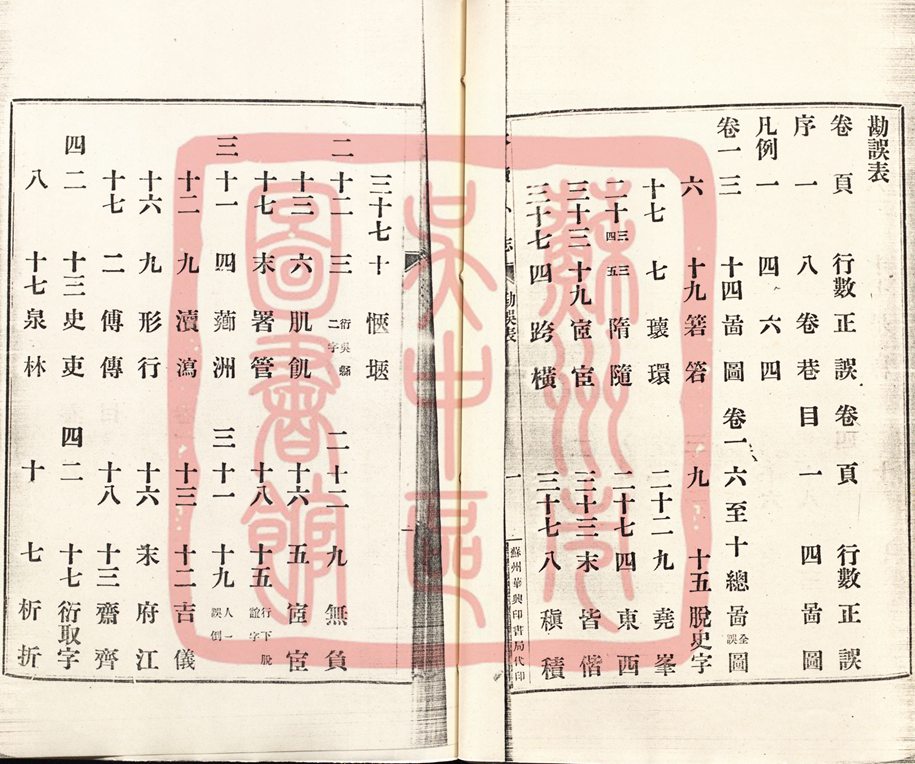 勘誤表
卷 頁 行數 正 誤 卷 頁 行數 正 誤
序 一 八 卷 巷 目 一 四 啚 圖
凡例 一 四 六 四
卷一 三 十四 啚 圖 卷一 六至十總 啚 全誤 圖
六 十九 箬 箬 九 十五 脫史字
十七 七 瓌 環 二十二 九 堯 峯
二十 四三 五三 隋 隨 二十七 四 東 西
三十三 十九 宧 宦 三十三 末 皆 偕
三十七 四 跨 橫 三十七 八 稹 積
志 勘誤表 一 蘇州華興印書局代印
三十七 十 愜 堰
二 十二 三 衍吳縣二字 二 十二 九 無 負
十三 六 肌 飢 十六 五 宧 宦
十七 末 署 管 十八 十五 行下脫誼字
三 十一 四 洲 三 十一 十九 人一誤倒
十二 九 瀆 瀉 十三 十二 吉 儀
十六 九 形 行 十六 末 府 江
十七 二 傅 傳 十八 十三 齋 齊
四 二 十三 史 吏 四 二 十七 衍取字
八 十七 泉 林 十 七 析 折
蘇州市吳中區圖書館